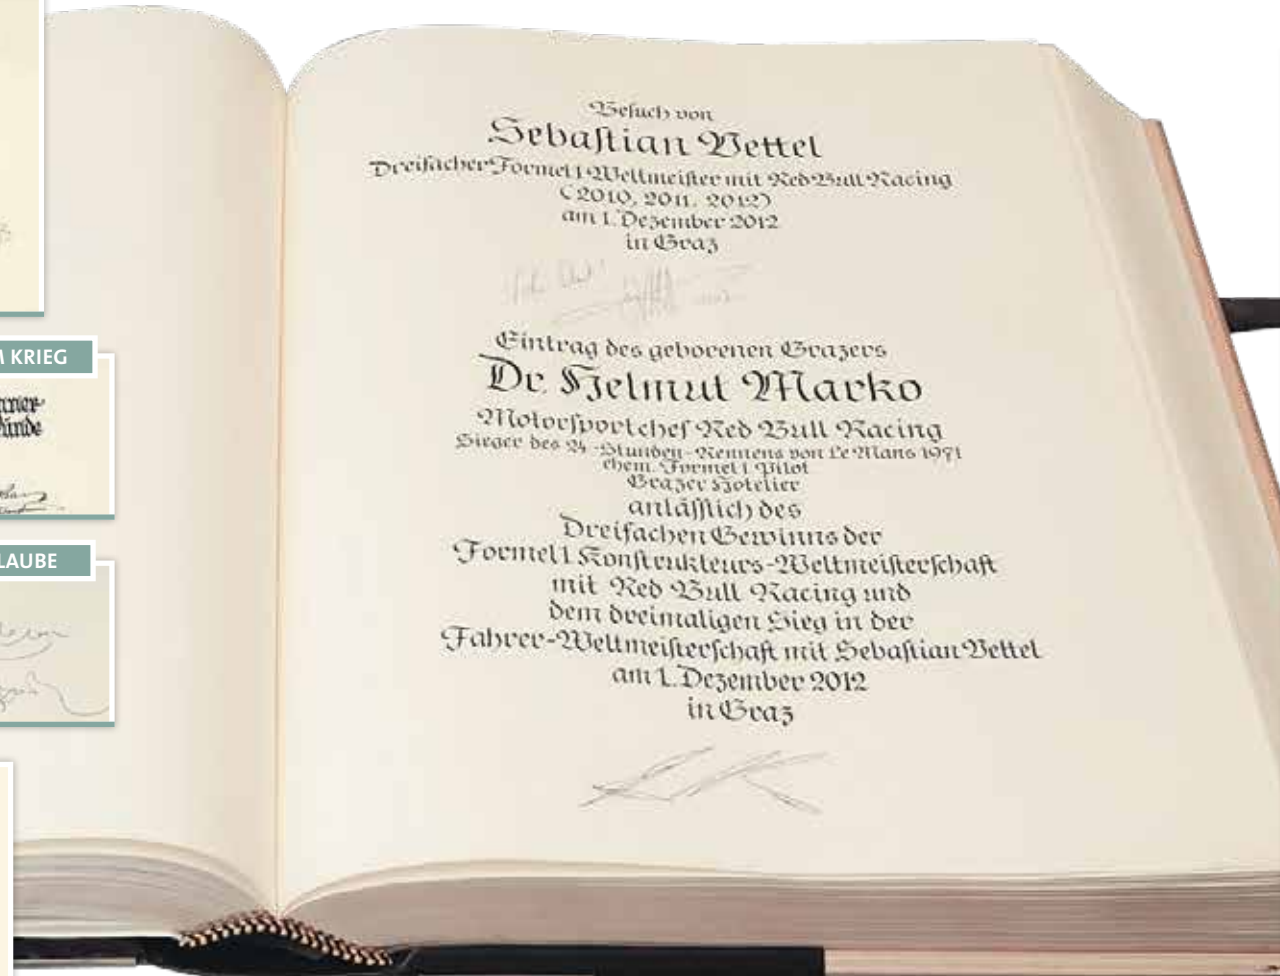 Besuch von
Sebastian Vettel
Dreifacher Formel 1-Weltmeister mit Red Bull Racing
(2010, 2011, 2012)
am 1. Dezember 2012
in Graz
Eintrag des geborenen Grazers
Dr. Helmut Marko
Motorsportchef Red Bull Racing
Sieger des 24-Stunden-Rennens von Le Mans 1971
ehem. Formel 1 Pilot
Grazer Hotelier
anlässlich des
Dreifachen Gewinns der
Formel 1 Konstrukteurs-Weltmeisterschaft
mit Red Bull Racing und
dem dreimaligen Sieg in der
Fahrer-Weltmeisterschaft mit Sebastian Vettel
am 1. Dezember 2012
in Graz
KRIEG
LAUBE